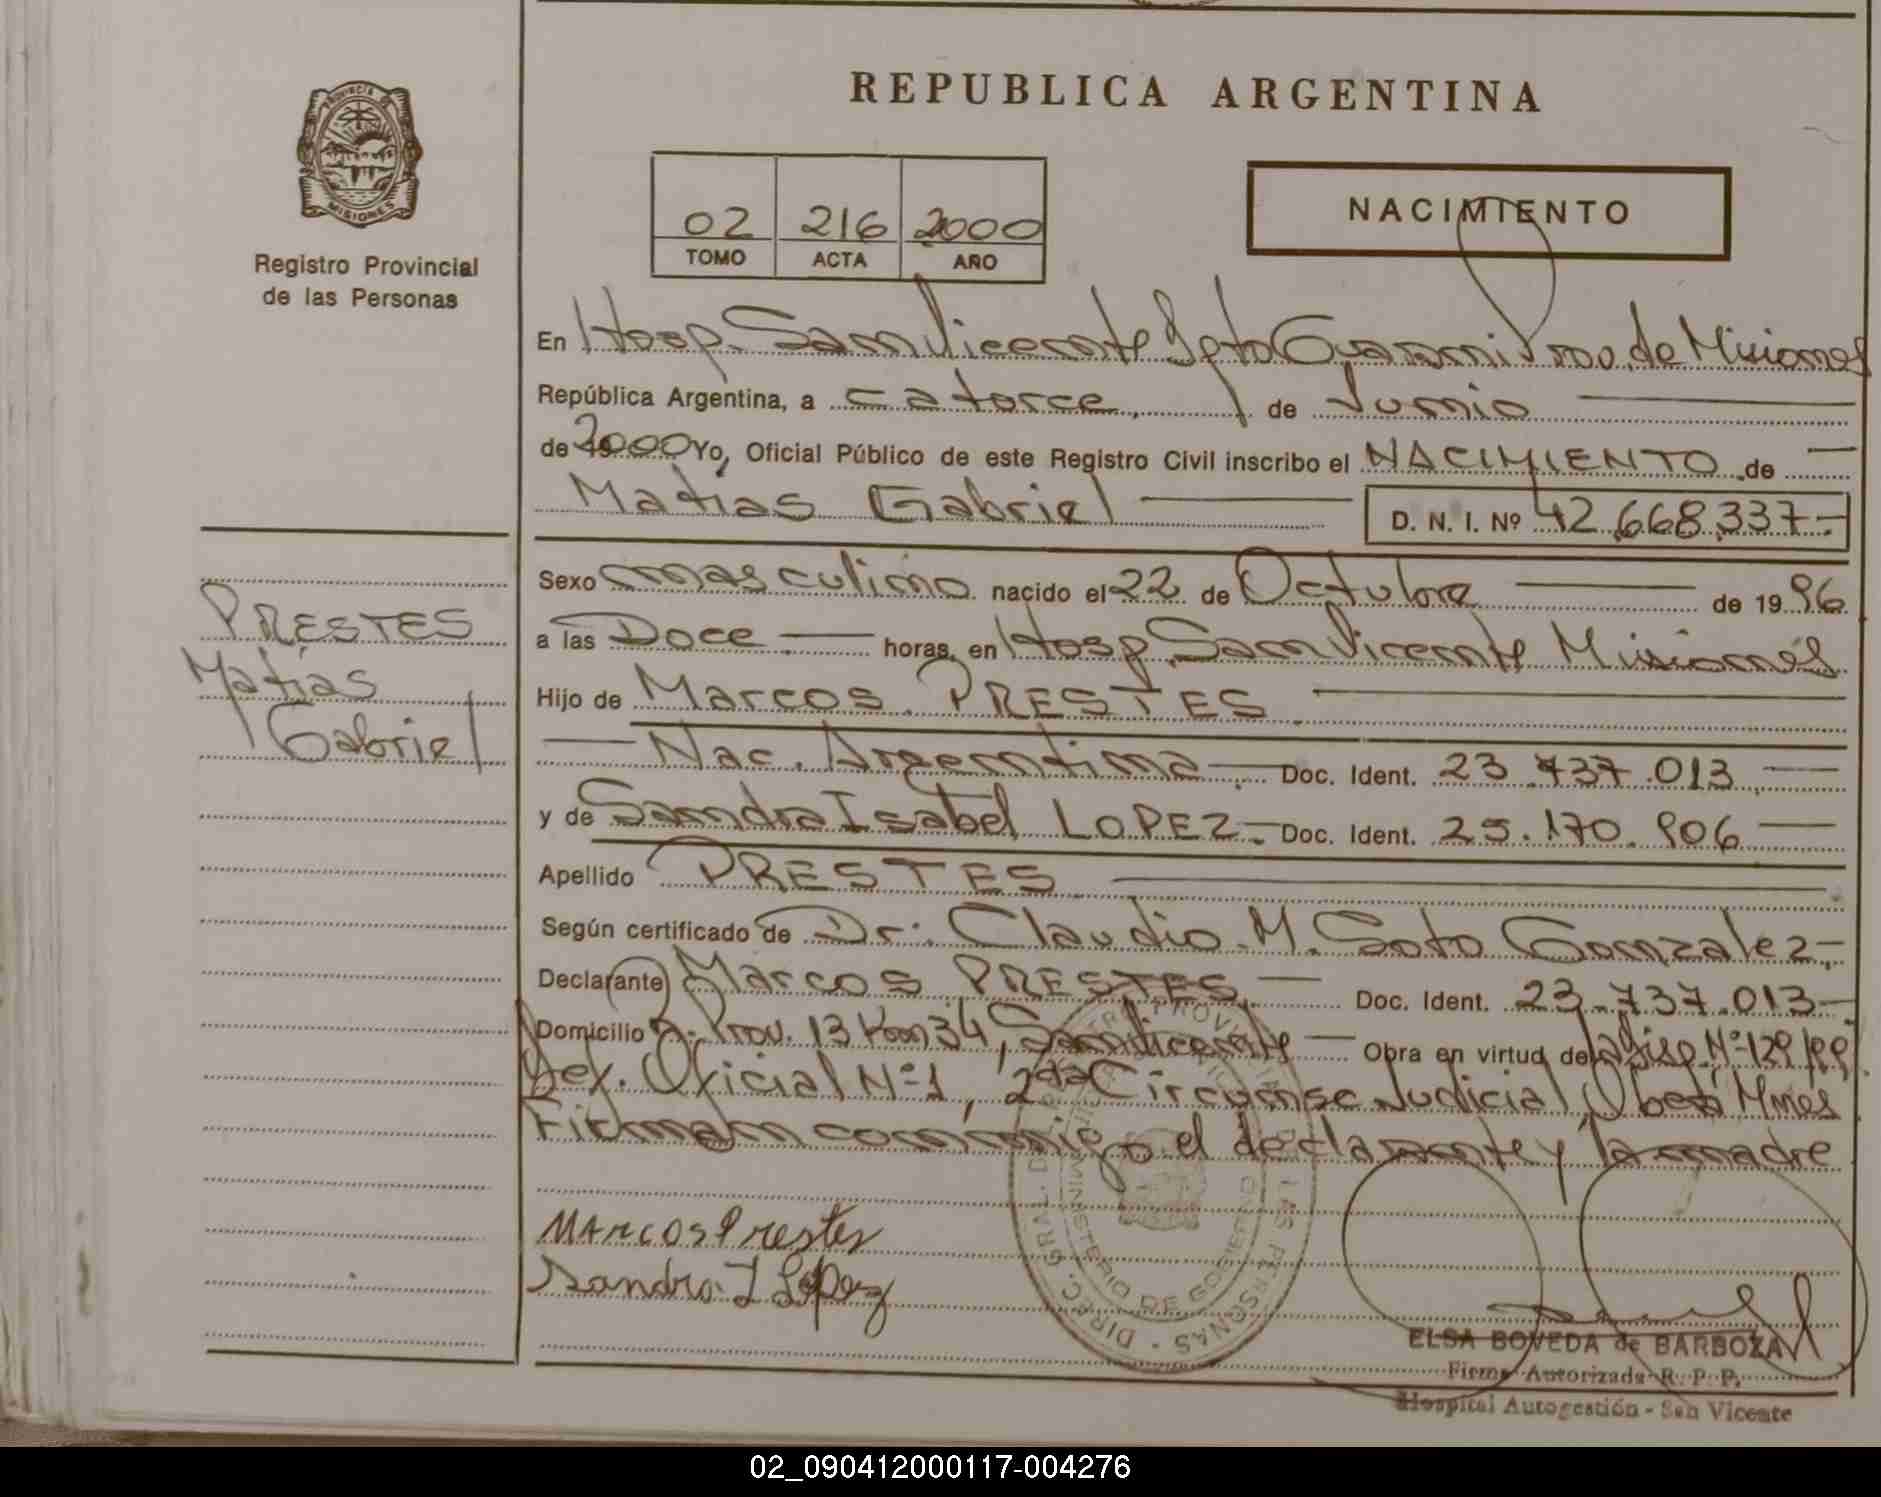 REPUBLICA ARGENTINA
PROVINCIA DE
MISIONES
Registro Provincial
de las Personas
02 216 2000
TOMO ACTA AÑO
NACIMIENTO
En Hosp. San Vicente Dpto Guarani Prov. de Misiones
República Argentina, a catorce, de Junio
de 2000 Yo, Oficial Público de este Registro Civil inscribo el NACIMIENTO de
Matias Gabriel D. N. I. Nº 42.668.337-
Sexo masculino nacido el 22 de Octubre de 19 96
a las Doce horas, en Hosp. San Vicente Misiones
Hijo de Marcos PRESTES
Nac. Argentina Doc. Ident. 23.737.013
y de Sandra Isabel LOPEZ- Doc. Ident. 25.170.906
Apellido PRESTES
Según certificado de Dr. Claudio M. Soto Gonzalez-
Declarante Marcos PRESTES Doc. Ident. 23.737.013-
Domicilio R. Prov. 13 Km 34, San Vicente Obra en virtud de la Disp. Nº 129/99
Def. Oficial Nº 1, 2da Circunsc Judicial, Oberá Mnes
Firman conmigo el declarante y la madre
PRESTES
Matías
Gabriel
Marcos Prestes
Sandra I Lopez
DIREC. GRAL. REGISTRO PROVINCIAL DE LAS PERSONAS
MINISTERIO DE GOBIERNO
ELSA BOVEDA de BARBOZA
Firma Autorizada R. P. P.
Hospital Autogestión - San Vicente
02_090412000117-004276